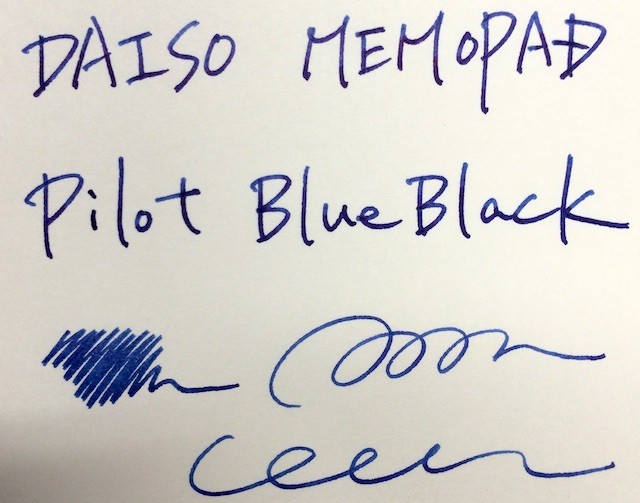 DAISO MEMOPAD
Pilot BlueBlack